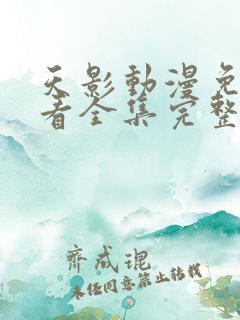 天影動漫免
看全集完整
齊成琨
未经同意禁止转载